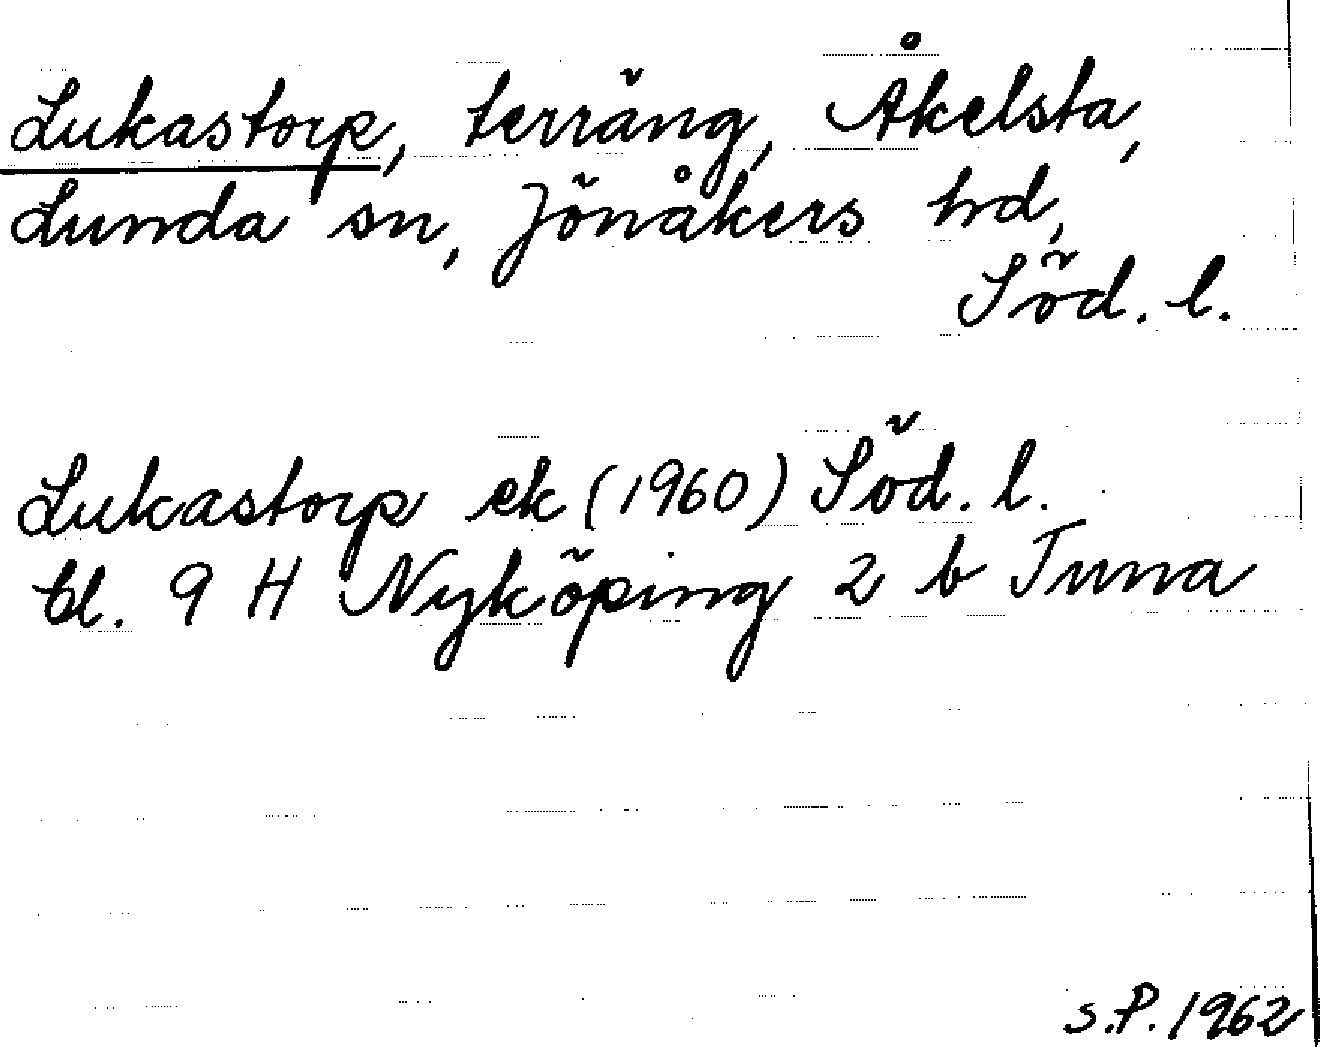 Lukastorp, terräng, Åkelsta,
Lunda sn, Jönåkers hd,
Söd. l.
Lukastorp ek (1960) Söd. l.
bl. 9 H Nyköping 2 b Tuna
S.P. 1962